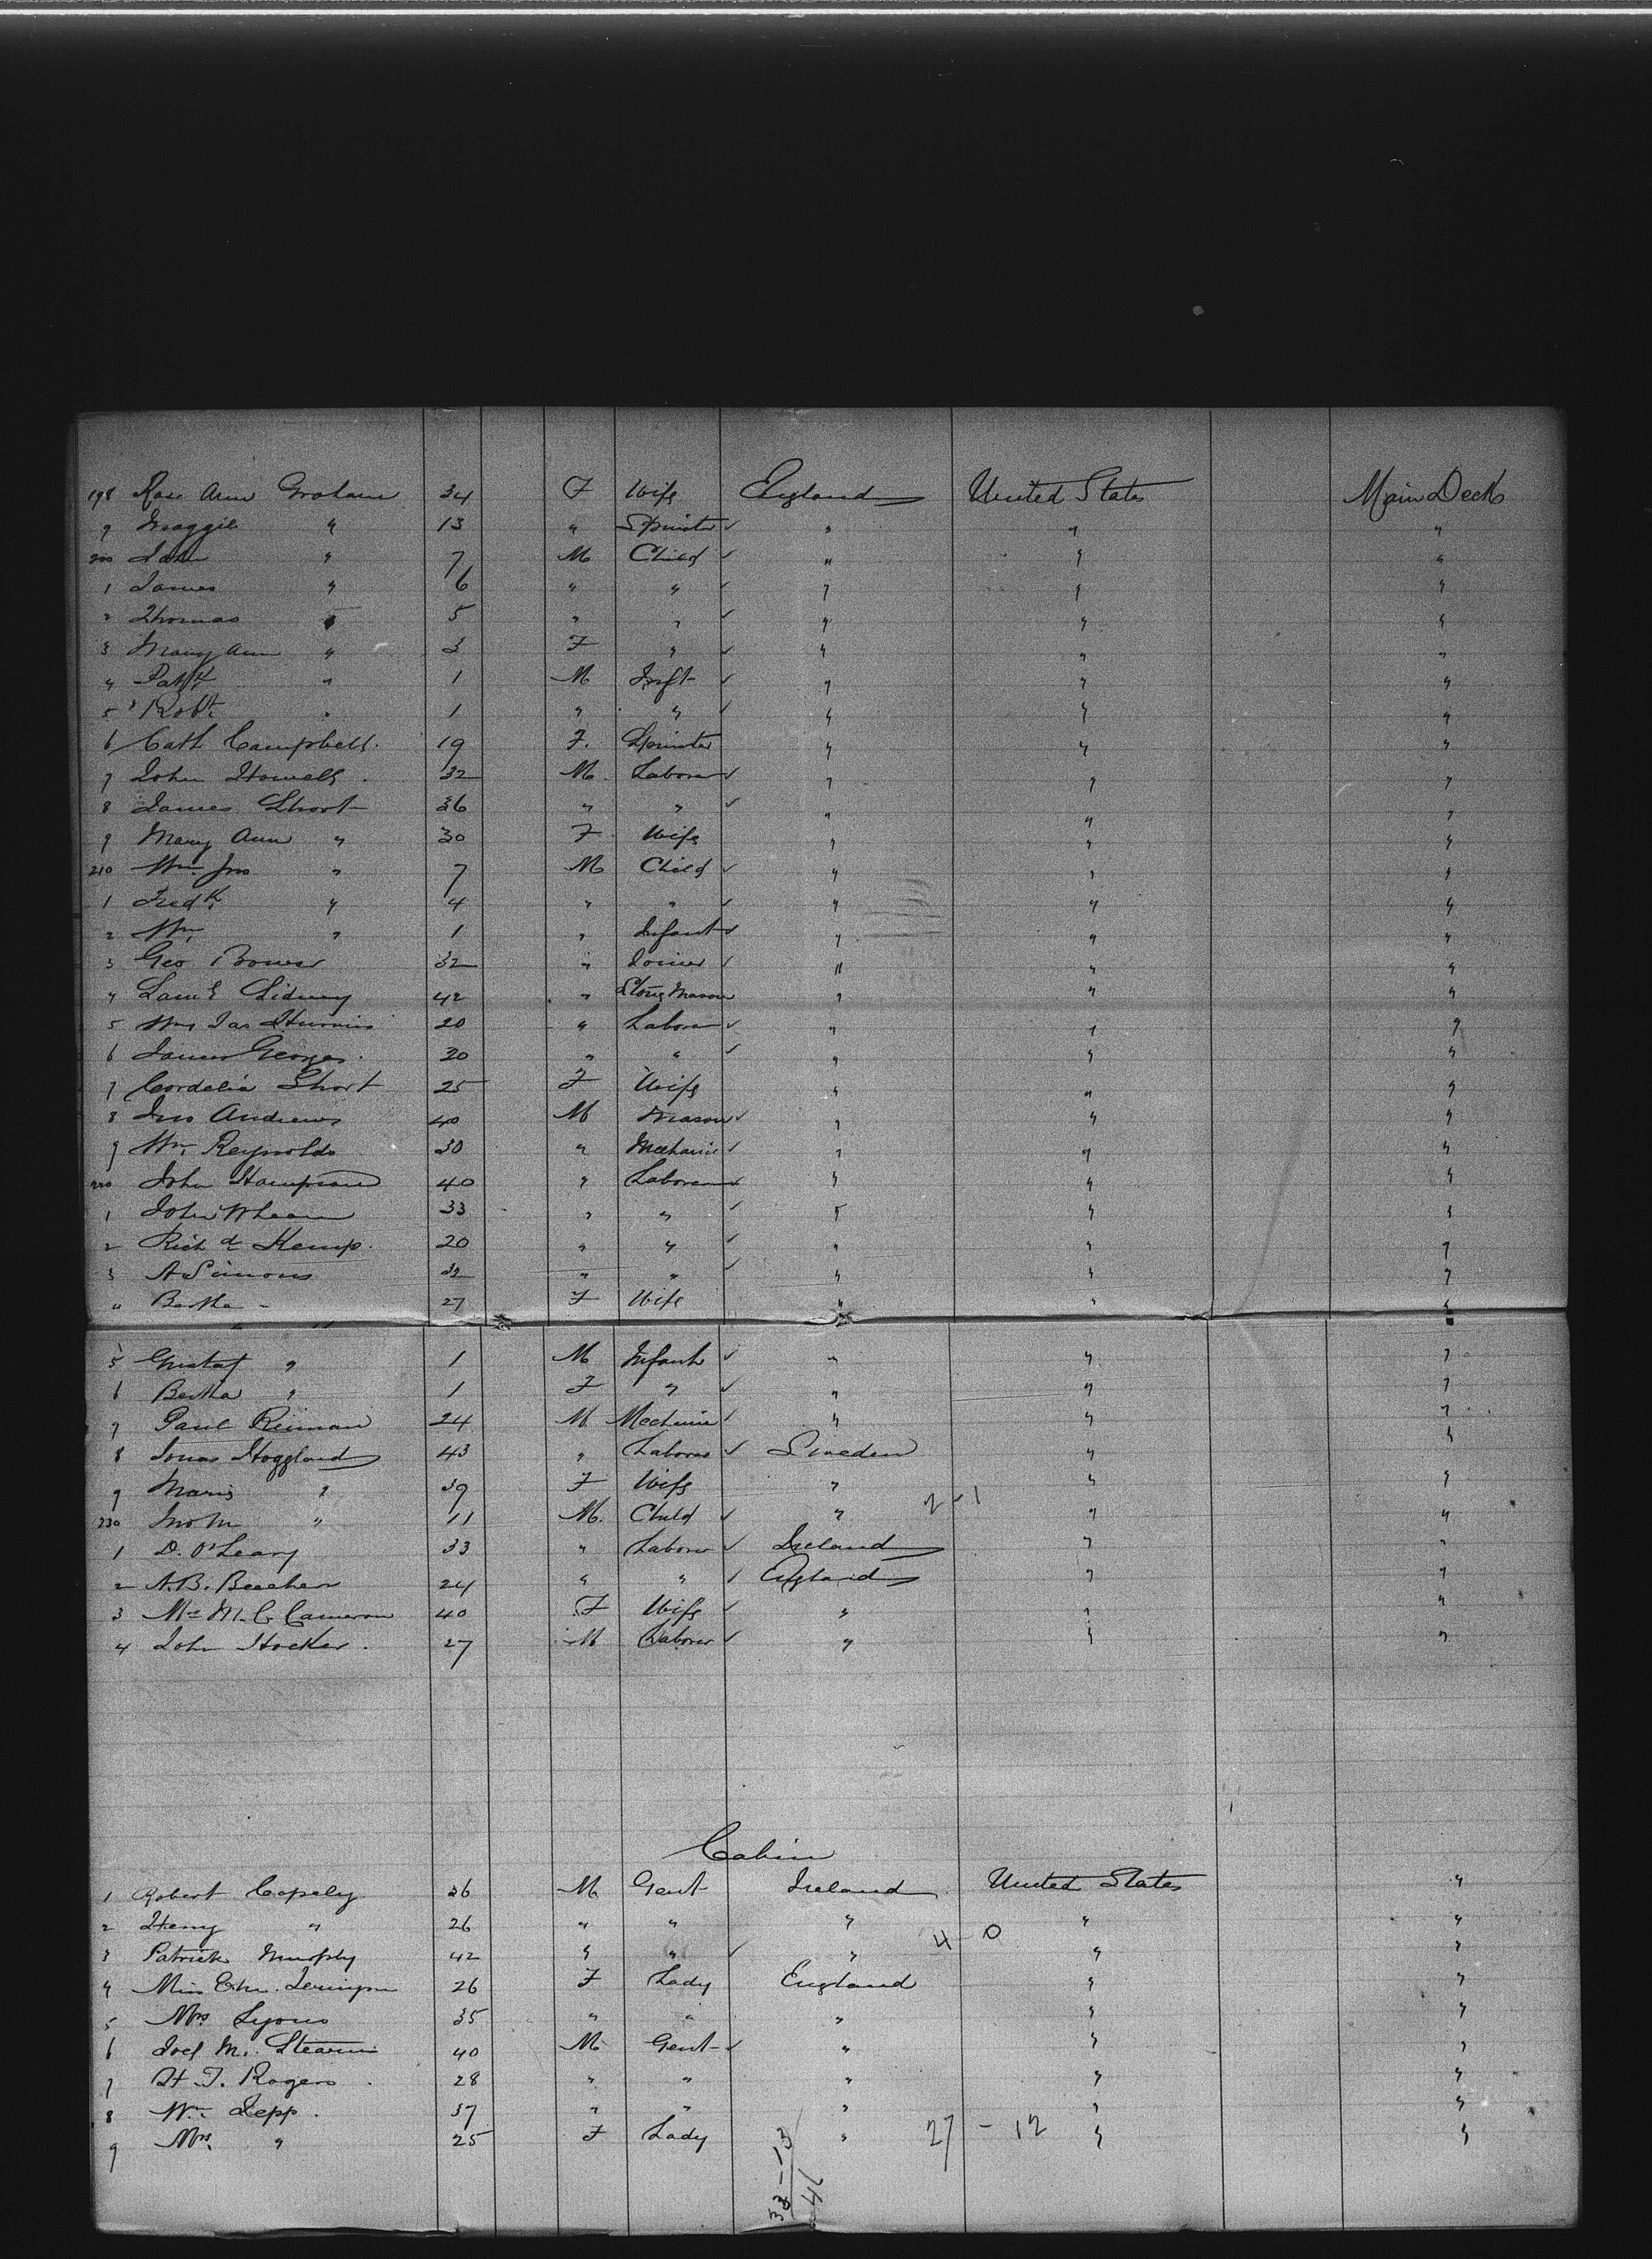 198 Rose Ann Graham 34 F Wife England United States Main Deck
9 Maggie " 13 " Spinster ✓ " " "
200 John " 7 M Child ✓ " " "
1 James " 6 " " ✓ " " "
2 Thomas " 5 " " ✓ " " "
3 Mary Ann " 3 F " ✓ " " "
4 Patk " 1 M Inft ✓ " " "
5 Robt " 1 " " ✓ " " "
6 Cath Campbell 19 F. Spinster " " "
7 John Howells 32 M. Laborer ✓ " " "
8 James Short 36 " " ✓ " " "
9 Mary Ann " 30 F Wife " " "
210 Wm Jno " 7 M Child ✓ " " "
1 Fredk " 4 " " ✓ " " "
2 Wm " 1 " Infant ✓ " " "
3 Geo Bower 32 " Joiner ✓ " " "
4 Saml Sidney 42 " Stone Mason " " "
5 Wm Jas 20 " Laborer ✓ " " "
6 James George 20 " " ✓ " " "
7 Cordelia Short 25 F Wife " " "
8 Jno Andrews 40 M Mason ✓ " " "
9 Wm Reynolds 30 " Mechanic ✓ " " "
220 John 40 " Laborer ✓ " " "
1 John 33 " " ✓ " " "
2 Richd Kemp 20 " " ✓ " " "
3 A Simons 32 " " ✓ " " "
4 Bertha - 27 F Wife " " "
5 Gustaf " 1 M Infant ✓ " " "
6 Bertha " 1 F " ✓ " " "
7 Paul 24 M. Mechanic ✓ " " "
8 Jonas Hoggland 43 " Laborer ✓ Sweden " "
9 " 39 F Wife " " "
230 " 11 M. Child ✓ " 2-1 " "
1 D. O'Leary 33 " Laborer ✓ Ireland " "
2 N. B. Beecher 24 " " ✓ England " "
3 M. C. Cameron 40 F Wife ✓ " " "
4 John Hocker 27 M Laborer ✓ " " "
Cabin
1 Robert Copely 36 M Gent Ireland United States "
2 Henry " 26 " " " " "
4-0
3 Patrick Murphy 42 " " ✓ " " "
4 Miss 26 F Lady England " "
5 Mrs Lyons 35 " " " " "
6 Joel M. Stearns 40 M Gent ✓ " " "
7 H. T. Rogers 28 " " " " "
8 Wm Jepp 37 " " " " "
9 Mrs " 25 F Lady " 27-12 " "
33-13
46